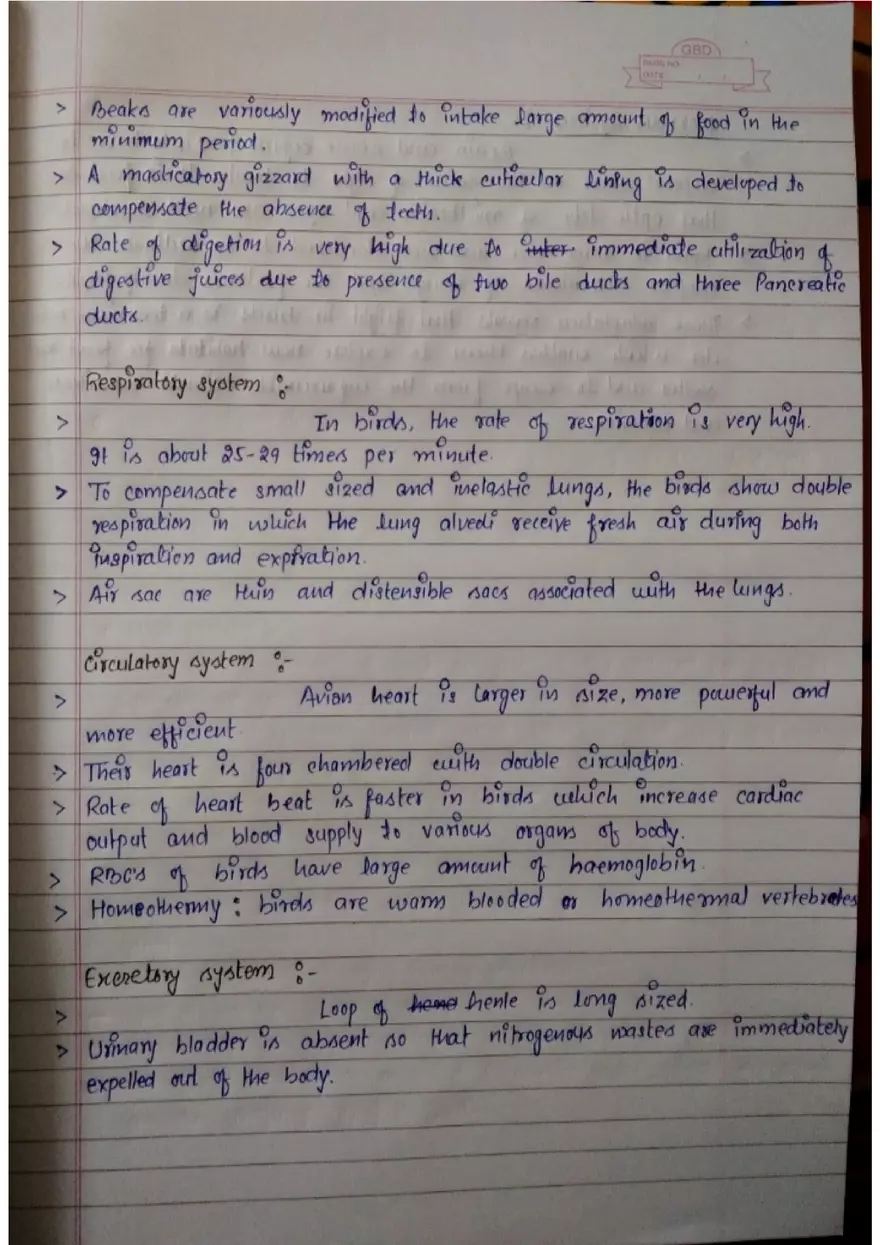 GBD
PAGE NO.
DATE
> Beaks are variously modified to intake large amount of food in the
minimum period.
> A masticatory gizzard with a thick cuticular lining is developed to
compensate the absence of teeth.
> Rate of digetion is very high due to inter immediate utilization of
digestive juices due to presence of two bile ducts and three Pancreatic
ducts.
Respiratory system :-
> In birds, the rate of respiration is very high.
It is about 25-29 times per minute.
> To compensate small sized and inelastic lungs, the birds show double
respiration in which the lung alveoli receive fresh air during both
inspiration and expiration.
> Air sac are thin and distensible sacs associated with the lungs.
Circulatory system :-
> Avian heart is larger in size, more powerful and
more efficient
> Their heart is four chambered with double circulation.
> Rate of heart beat is faster in birds which increase cardiac
output and blood supply to various organs of body.
> RBC's of birds have large amount of haemoglobin.
> Homeothermy : birds are warm blooded or homeothermal vertebrates
Excretory system :-
> Loop of henle is long sized.
> Urinary bladder is absent so that nitrogenous wastes are immediately
expelled out of the body.